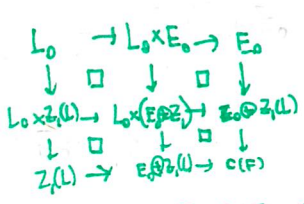 L₀ → L₀ × E₀ → E₀
↓ □ ↓ □ ↓
L₀ × Z₁(L) → L₀ × (E₀ ⊕ Z₁) → E₀ ⊕ Z₁(L)
↓ □ ↓ □ ↓
Z₁(L) → E₀ ⊕ Z₁(L) → C(F)